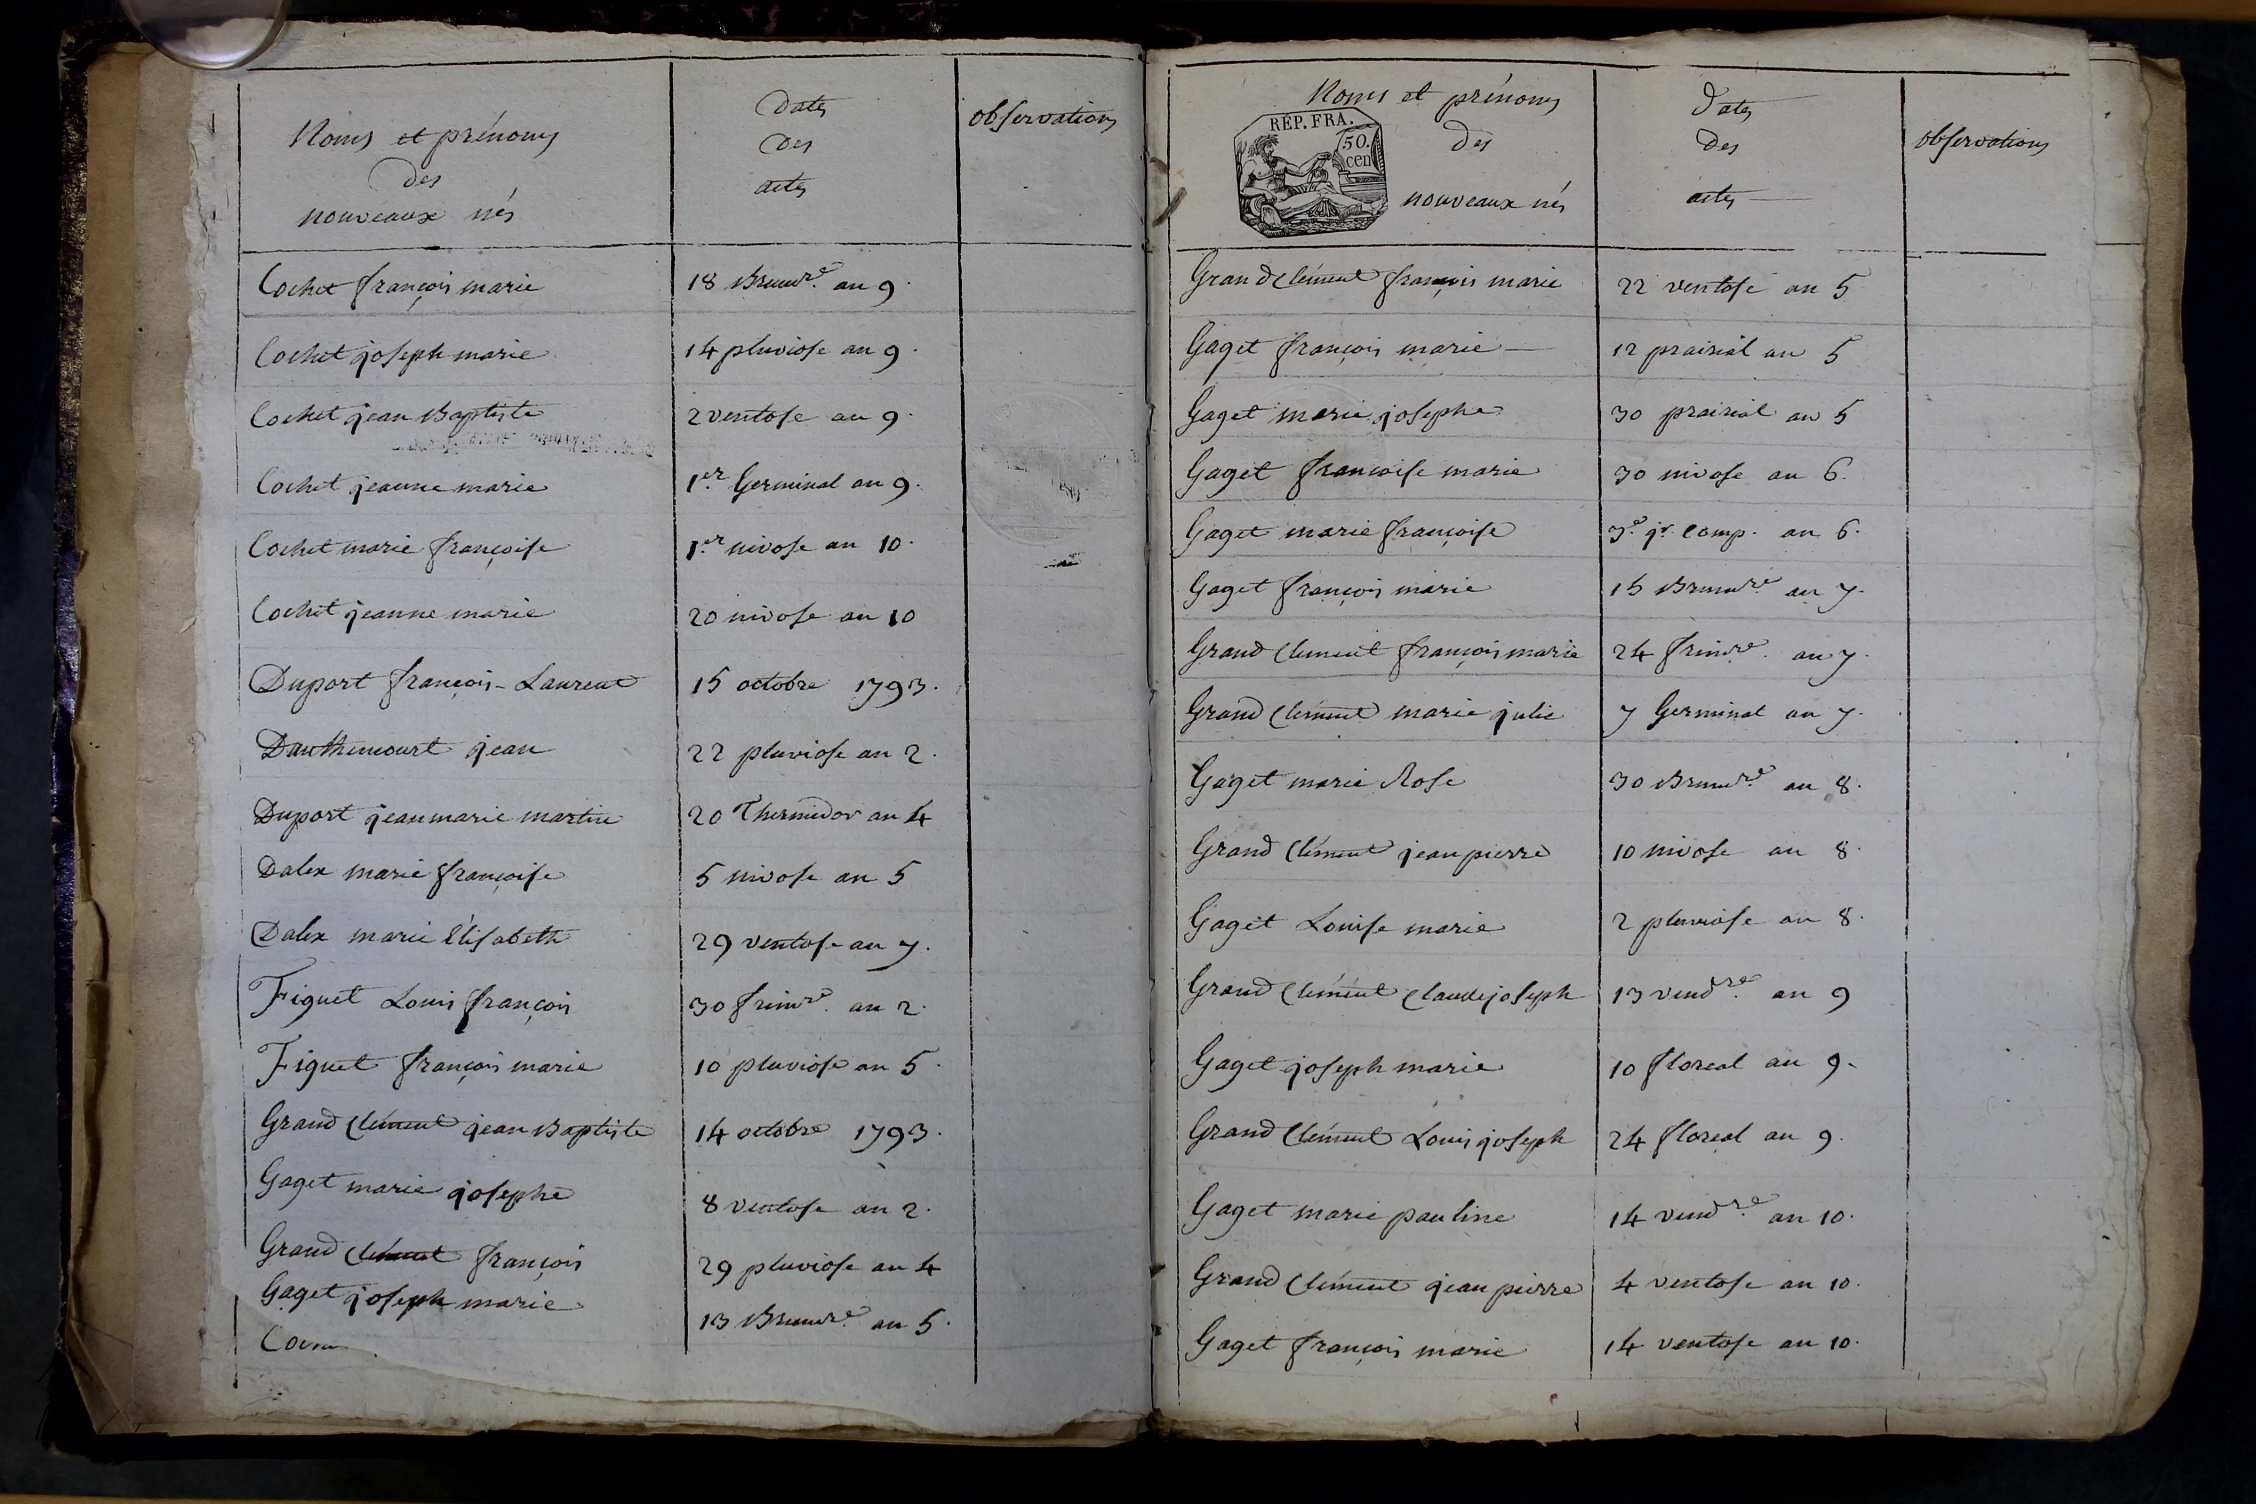 Noms et prénoms
des
nouveaux nés
Dates
des
actes
observations
Cochet françois marie 18 Brumre. an 9.
Cochet joseph marie 14 pluviose an 9.
Cochet jean Baptiste 2 ventose an 9.
Cochet jeanne marie 1er Germinal an 9.
Cochet marie françoise 1er nivose an 10.
Cochet jeanne marie 20 nivose an 10
Duport françois-Laurent 15 octobre 1793.
Danthencourt jean 22 pluviose an 2.
Duport jean marie martin 20 Thermidor an 4
Dalex marie françoise 5 nivose an 5
Dalex marie Elisabeth 29 ventose an 7.
Figuet Louis françois 30 frimre. an 2.
Figuet françois marie 10 pluviose an 5.
Grand Clément jean Baptiste 14 octobre 1793.
Gaget marie josephe 8 ventose an 2.
Grand Clément françois 29 pluviose an 4
Gaget joseph marie 13 Brumre. an 5.
Noms et prénoms
des
nouveaux nés
RÉP. FRA.
50.
cen
Dates
des
actes
observations
Grand Clément françois marie 22 ventose an 5
Gaget françois marie 12 prairial an 5
Gaget marie josephe 30 prairial an 5
Gaget françoise marie 30 nivose an 6.
Gaget marie françoise 3e. jr. comp. an 6.
Gaget françois marie 15 Brumre. an 7.
Grand Clément françois marie 24 frimre. an 7.
Grand Clément marie julie 7 Germinal an 7.
Gaget marie Rose 30 Brumre. an 8.
Grand Clément jean pierre 10 nivose an 8.
Gaget Louise marie 2 pluviose an 8.
Grand Clément Claude joseph 13 vendre. an 9
Gaget joseph marie 10 floreal an 9.
Grand Clément Louis joseph 24 floreal an 9.
Gaget marie pauline 14 vendre. an 10.
Grand Clément jean pierre 4 ventose an 10.
Gaget françois marie 14 ventose an 10.